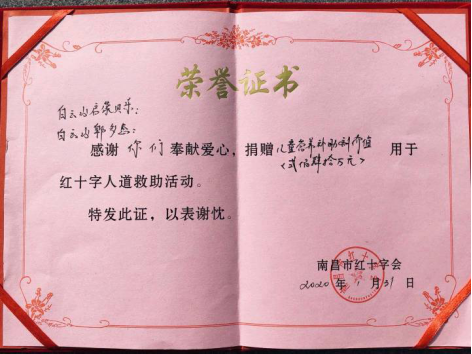 荣誉证书
白云山
白云山
感谢 你们 奉献爱心，捐赠 儿童营养补助剂价值 用于
（贰佰肆拾万元）
红十字人道救助活动。
特发此证，以表谢忱。
南昌市红十字会
2020年1月31日